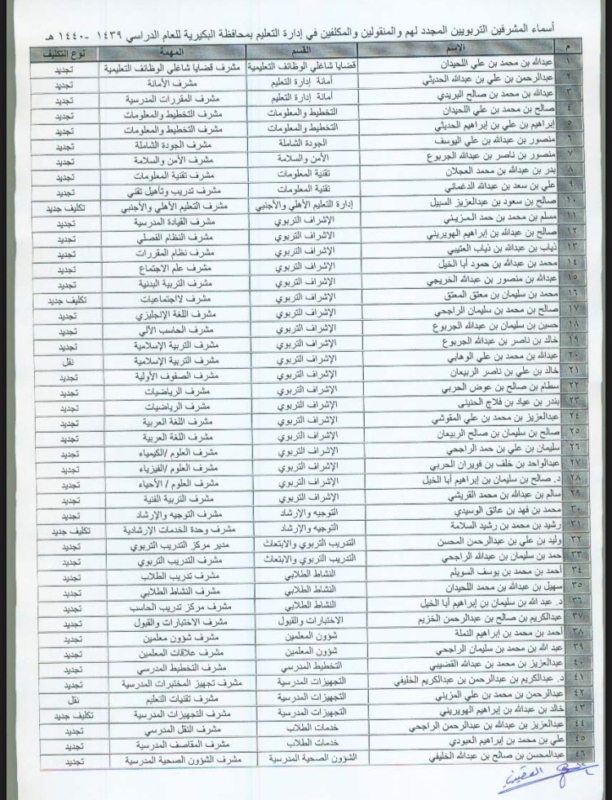 أسماء المشرفين التربويين المجدد لهم والمنقولين والمكلفين في إدارة التعليم بمحافظة البكيرية للعام الدراسي ١٤٣٩ - ١٤٤٠ هـ
م الاسم القسم المهمة نوع التكليف
١ عبدالله بن محمد بن علي اللحيدان قضايا شاغلي الوظائف التعليمية مشرف قضايا شاغلي الوظائف التعليمية تجديد
٢ عبدالرحمن بن علي بن عبدالله الحديثي أمانة إدارة التعليم مشرف الأمانة تجديد
٣ عبدالله بن محمد بن صالح البريدي أمانة إدارة التعليم مشرف المقررات المدرسية تجديد
٤ صالح بن محمد بن علي اللحيدان التخطيط والمعلومات مشرف التخطيط والمعلومات تجديد
٥ إبراهيم بن علي بن إبراهيم الحديثي التخطيط والمعلومات مشرف التخطيط والمعلومات تجديد
٦ منصور بن عبدالله بن علي اليوسف الجودة الشاملة مشرف الجودة الشاملة تجديد
٧ منصور بن ناصر بن عبدالله الجربوع الأمن والسلامة مشرف الأمن والسلامة تجديد
٨ بدر بن عبدالله بن محمد العجلان تقنية المعلومات مشرف تقنية المعلومات تجديد
٩ علي بن سعد بن عبدالله الدغماني تقنية المعلومات مشرف تدريب وتأهيل تقني تجديد
١٠ صالح بن سعود بن عبدالعزيز السبيل إدارة التعليم الأهلي والأجنبي مشرف التعليم الأهلي والأجنبي تكليف جديد
١١ مسلم بن محمد بن حمد المزيني الإشراف التربوي مشرف القيادة المدرسية تجديد
١٢ صالح بن عبدالله بن إبراهيم الهويريني الإشراف التربوي مشرف النظام الفصلي تجديد
١٣ ذياب بن عبدالله بن ذياب العتيبي الإشراف التربوي مشرف نظام المقررات تجديد
١٤ محمد بن عبدالله بن حمود أبا الخيل الإشراف التربوي مشرف علم الاجتماع تجديد
١٥ عبدالله بن منصور بن عبدالله الخريجي الإشراف التربوي مشرف التربية البدنية تجديد
١٦ محمد بن سليمان بن معتق المعتق الإشراف التربوي مشرف لاجتماعيات تكليف جديد
١٧ صالح بن محمد بن سليمان الراجحي الإشراف التربوي مشرف اللغة الإنجليزي تجديد
١٨ حسين بن سليمان بن عبدالله الجربوع الإشراف التربوي مشرف الحاسب الآلي تجديد
١٩ خالد بن ناصر بن عبدالله الجربوع الإشراف التربوي مشرف التربية الإسلامية تجديد
٢٠ عبدالله بن محمد بن علي الوهابي الإشراف التربوي مشرف التربية الإسلامية نقل
٢١ خالد بن علي بن ناصر الربيعان الإشراف التربوي مشرف الصفوف الأولية تجديد
٢٢ سطام بن صالح بن عوض الحربي الإشراف التربوي مشرف الرياضيات تجديد
٢٣ بندر بن عياد بن فلاح الإشراف التربوي مشرف الرياضيات تجديد
٢٤ عبدالعزيز بن محمد بن علي المقوشي الإشراف التربوي مشرف اللغة العربية تجديد
٢٥ صالح بن سليمان بن صالح الربيعان الإشراف التربوي مشرف اللغة العربية تجديد
٢٦ سليمان بن علي بن حمد الراجحي الإشراف التربوي مشرف العلوم /الكيمياء تجديد
٢٧ عبدالواحد بن خلف بن فويران الحربي الإشراف التربوي مشرف العلوم /الفيزياء تجديد
٢٨ د. صالح بن سليمان بن إبراهيم أبا الخيل الإشراف التربوي مشرف العلوم / الأحياء تجديد
٢٩ سالم بن عبدالله بن محمد القريشي الإشراف التربوي مشرف التربية الفنية تجديد
٣٠ محمد بن فهد بن عاتق الوسيدي التوجيه والإرشاد مشرف التوجيه والإرشاد تجديد
٣١ رشيد بن محمد بن رشيد السلامة التوجيه والإرشاد مشرف وحدة الخدمات الإرشادية تكليف جديد
٣٢ وليد بن علي بن عبدالرحمن المحسن التدريب التربوي والابتعاث مدير مركز التدريب التربوي تجديد
٣٣ حمد بن سليمان بن عبدالله الراجحي التدريب التربوي والابتعاث مشرف التدريب التربوي تجديد
٣٤ أحمد بن محمد بن يوسف السويلم النشاط الطلابي مشرف تدريب الطلاب تجديد
٣٥ سهيل بن عبدالله بن محمد اللحيدان النشاط الطلابي مشرف النشاط الطلابي تجديد
٣٦ د. عبد الله بن سليمان بن إبراهيم أبا الخيل النشاط الطلابي مشرف مركز تدريب الحاسب تجديد
٣٧ عبدالكريم بن صالح بن عبدالرحمن الخزيم الاختبارات والقبول مشرف الاختبارات والقبول تجديد
٣٨ أحمد بن محمد بن إبراهيم النملة شؤون المعلمين مشرف شؤون معلمين تجديد
٣٩ عبد الله بن محمد بن سليمان الراجحي شؤون المعلمين مشرف علاقات المعلمين تجديد
٤٠ عبدالعزيز بن محمد بن عبدالله القضيبي التخطيط المدرسي مشرف التخطيط المدرسي تجديد
٤١ د. عبدالكريم بن عبدالرحمن بن عبدالكريم الخليفي التجهيزات المدرسية مشرف تجهيز المختبرات المدرسية تجديد
٤٢ عبدالرحمن بن محمد بن علي المزيني التجهيزات المدرسية مشرف تقنيات التعليم نقل
٤٣ خالد بن عبدالله بن إبراهيم الهويريني التجهيزات المدرسية مشرف التجهيزات المدرسية تكليف جديد
٤٤ عبدالعزيز بن عبدالله بن عبدالرحمن الراجحي خدمات الطلاب مشرف النقل المدرسي تجديد
٤٥ علي بن محمد بن إبراهيم العبودي خدمات الطلاب مشرف المقاصف المدرسية تجديد
٤٦ عبدالمحسن بن صالح بن عبدالله الخليفي الشؤون الصحية المدرسية مشرف الشؤون الصحية المدرسية تجديد